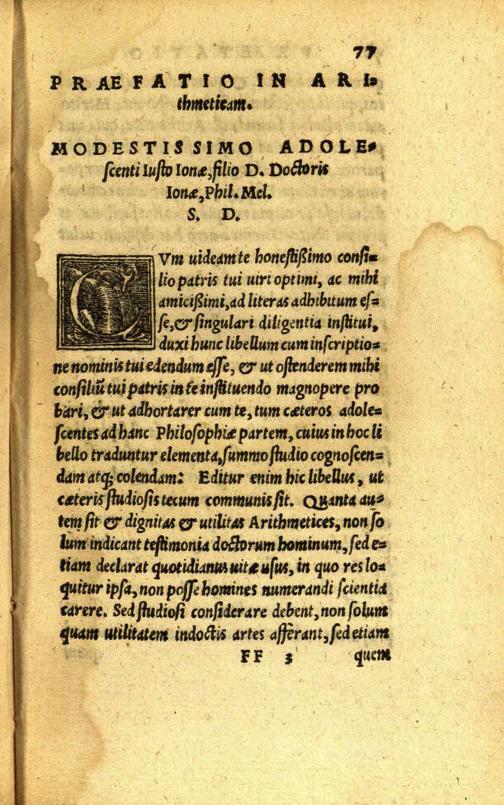 77
PRAEFATIO IN ARI-
thmeticam.
MODESTISSIMO ADOLE-
scenti Iusto Ionæ, filio D. Doctoris
Ionæ, Phil. Mel.
S. D.
CVm uideam te honestißimo consi-
lio patris tui uiri optimi, ac mihi
amicißimi, ad literas adhibitum es-
se, & singulari diligentia institui,
duxi hunc libellum cum inscriptio-
ne nominis tui edendum esse, & ut ostenderem mihi
consiliũ tui patris in te instituendo magnopere pro
bari, & ut adhortarer cum te, tum cæteros adole-
scentes ad hanc Philosophiæ partem, cuius in hoc li
bello traduntur elementa, summo studio cognoscen-
dam atq; colendam: Editur enim hic libellus, ut
cæteris studiosis tecum communis sit. Quanta au-
tem sit & dignitas & utilitas Arithmetices, non so
lum indicant testimonia doctorum hominum, sed e-
tiam declarat quotidianus uitæ usus, in quo res lo-
quitur ipsa, non posse homines numerandi scientia
carere. Sed studiosi considerare debent, non solum
quam utilitatem indoctis artes afferant, sed etiam
FF 3 quem